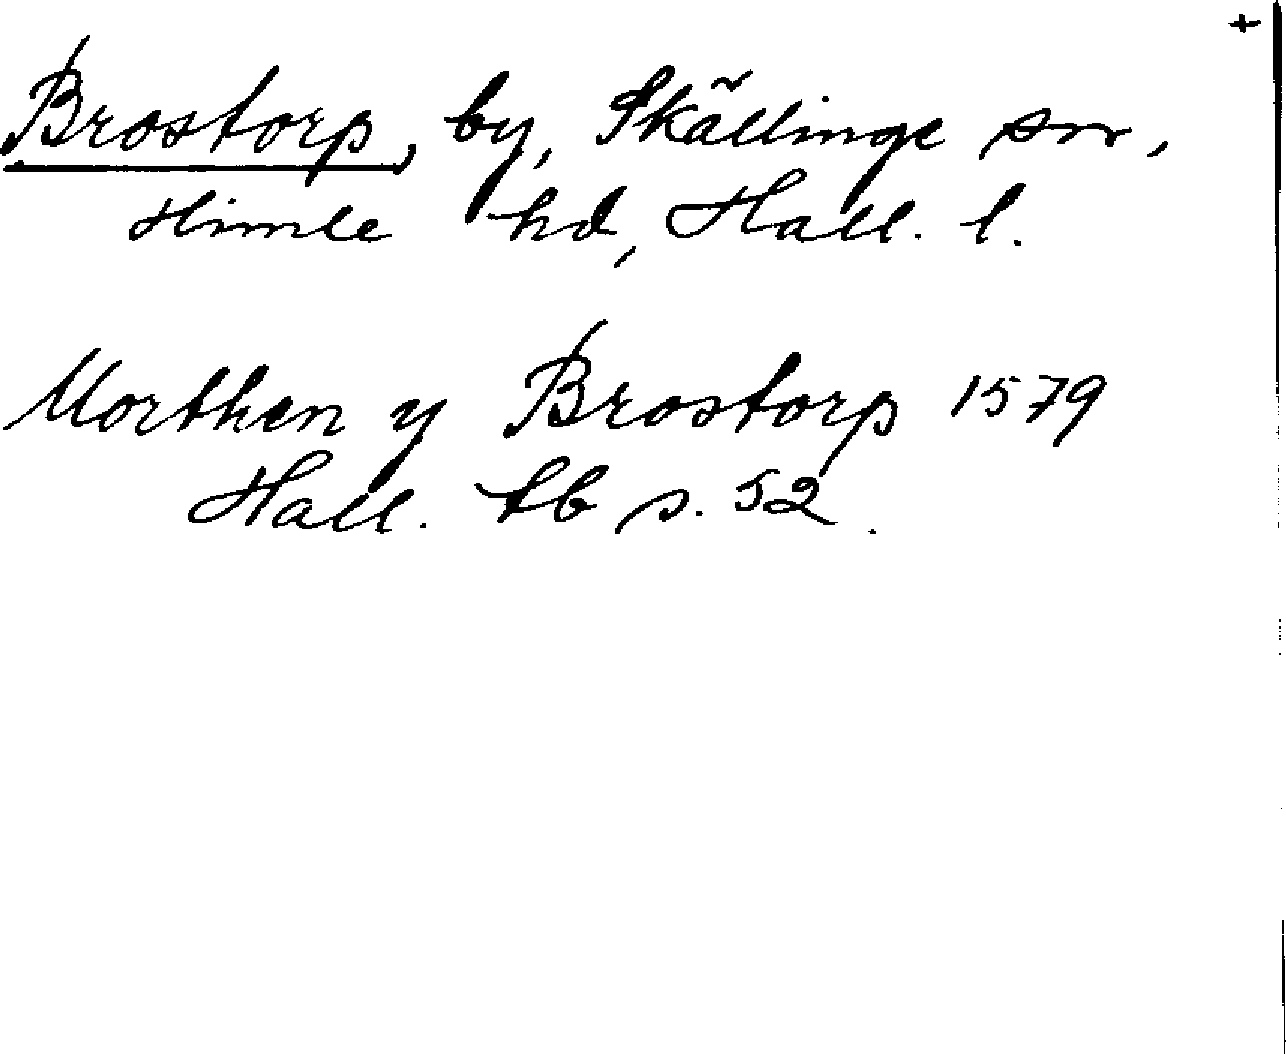 +
Brostorp, by, Skällinge sn,
Himle hd, Hall. l.
Morthen y Brostorp 1579
Hall. tb s. 52.